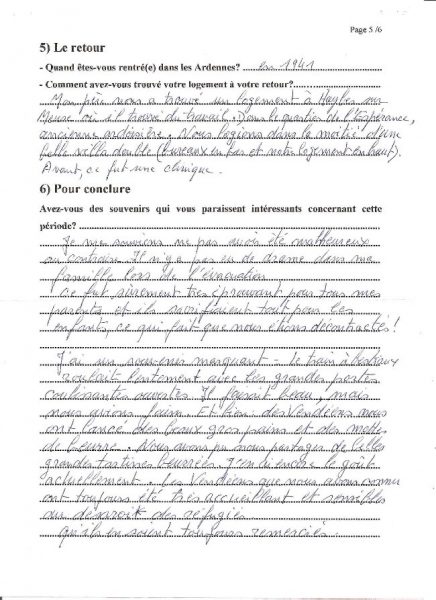 Page 5 /6
5) Le retour
- Quand êtes-vous rentré(e) dans les Ardennes? en 1941
- Comment avez-vous trouvé votre logement à votre retour?
Mon père nous a trouvé un logement à Haybes sur
Meuse où il trouva du travail. Dans le quartier de l'Espérance,
ancienne ardoisière. Nous logions dans la moitié d'une
belle villa double (bureaux en bas et notre logement en haut).
Avant, ce fut une clinique.
6) Pour conclure
Avez-vous des souvenirs qui vous paraissent intéressants concernant cette
période?
Je me souviens ne pas avoir été malheureux
au contraire. Il n'y a pas eu de drame dans ma
famille lors de l'évacuation
Ce fut sûrement très éprouvant pour tous mes
parents et ils sacrifiaient tout pour les
enfants, ce qui fait que nous étions décontractés!
J'ai un souvenir marquant - le train à bestiaux
roulait lentement avec les grandes portes
coulissantes ouvertes. Il faisait beau, mais
nous avions faim. Et bien des Vendéens nous
ont lancé des beaux gros pains et des mottes
de beurre. Nous avons pu nous partager de belles
grandes tartines beurrées. J'en ai encore le goût
actuellement. Les Vendéens que nous avons connus
ont toujours été très accueillant et sensibles
au désarroi des réfugiés
qu'ils en soient toujours remerciés.